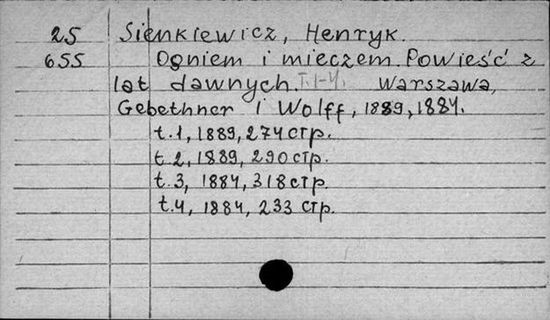 25 Sienkiewicz, Henryk.
655 Ogniem i mieczem. Powieść z
lat dawnych. T.1-4. Warszawa,
Gebethner i Wolff, 1889, 1884.
t.1, 1889, 274 стр.
t.2, 1889, 290 стр.
t.3, 1884, 318 стр.
t.4, 1884, 233 стр.